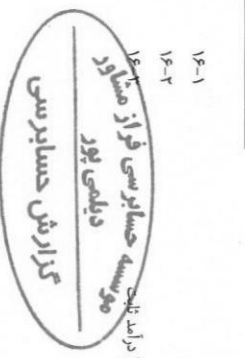 ۱۶-۱
۱۶-۲
۱۶-۳
درآمد ثابت
موسسه حسابرسی فراز مشاور
دیلمی پور
گزارش حسابرسی